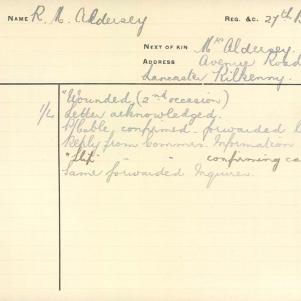 NAME R. M. Aldersey REG. &C. 27th B
NEXT OF KIN Mrs Aldersey
ADDRESS Avenue Road
Lancaster Kilkenny.
"Wounded (2nd occasion)
1/L Letter acknowledged.
confirmed. forwarded
Reply from Commrs. Information
" " confirming ca
Same forwarded Inquirer.